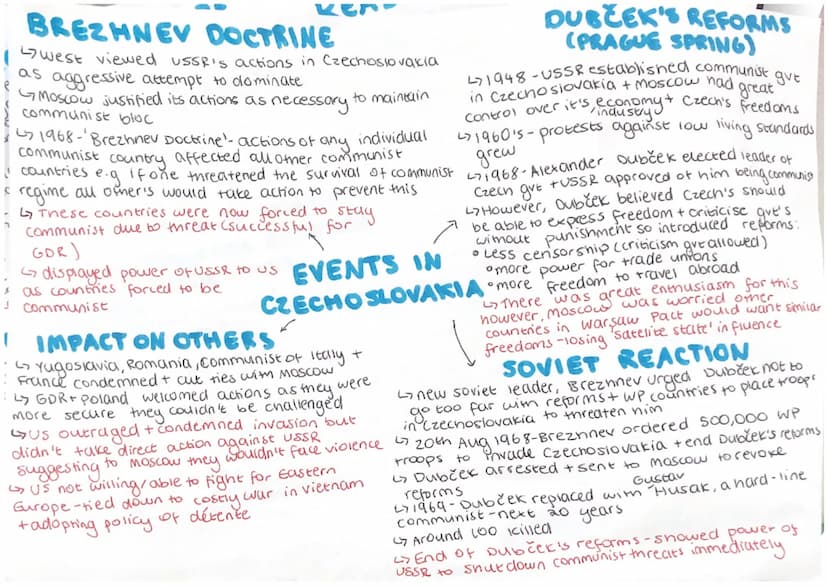 BREZHNEV DOCTRINE
↳ West viewed USSR's actions in Czechoslovakia
as aggressive attempt to dominate
↳ Moscow justified its actions as necessary to maintain
communist bloc
↳ 1968 - 'Brezhnev Doctrine' - actions of any individual
communist country affected all other communist
countries e.g if one threatened the survival of communist
regime all other's would take action to prevent this
↳ These countries were now forced to stay
communist due to threat (successful for
GDR)
↳ displayed power of USSR to US
as countries forced to be
communist
DUBČEK'S REFORMS
(PRAGUE SPRING)
↳ 1948 - USSR established communist gvt
in Czechoslovakia + Moscow had great
control over it's economy + Czech's freedoms
industry
↳ 1960's - protests against low living standards
grew
↳ 1968 - Alexander Dubček elected leader of
Czech gvt + USSR approved of him being communist
↳ However, Dubček believed Czech's should
be able to express freedom + criticise gvt's
without punishment so introduced reforms:
• Less censorship (criticism gvt allowed)
• more power for trade unions
• more freedom to travel abroad
↳ There was great enthusiasm for this
however, Moscow was worried other
countries in Warsaw Pact would want similar
freedoms - losing 'satelite state' influence
EVENTS IN
CZECHOSLOVAKIA
IMPACT ON OTHERS
↳ Yugoslavia, Romania, Communist of Italy +
France condemned + cut ties with Moscow
↳ GDR + Poland welcomed actions as they were
more secure they couldn't be challenged
↳ US outraged + condemned invasion but
didn't take direct action against USSR
suggesting to Moscow they wouldn't face violence
↳ US not willing/able to fight for Eastern
Europe - tied down to costly war in Vietnam
+ adopting policy of détente
SOVIET REACTION
↳ new soviet leader, Brezhnev urged Dubček not to
go too far with reforms + WP countries to place troops
in Czechoslovakia to threaten him
↳ 20th Aug 1968 - Brezhnev ordered 500,000 WP
troops to invade Czechoslovakia + end Dubček's reforms
↳ Dubček arrested + sent to Moscow to revoke
reforms
Gustav
↳ 1969 - Dubček replaced with Husak, a hard-line
communist - next 20 years
↳ Around 100 killed
↳ End of Dubček's reforms - showed power of
USSR to shut down communist threats immediately